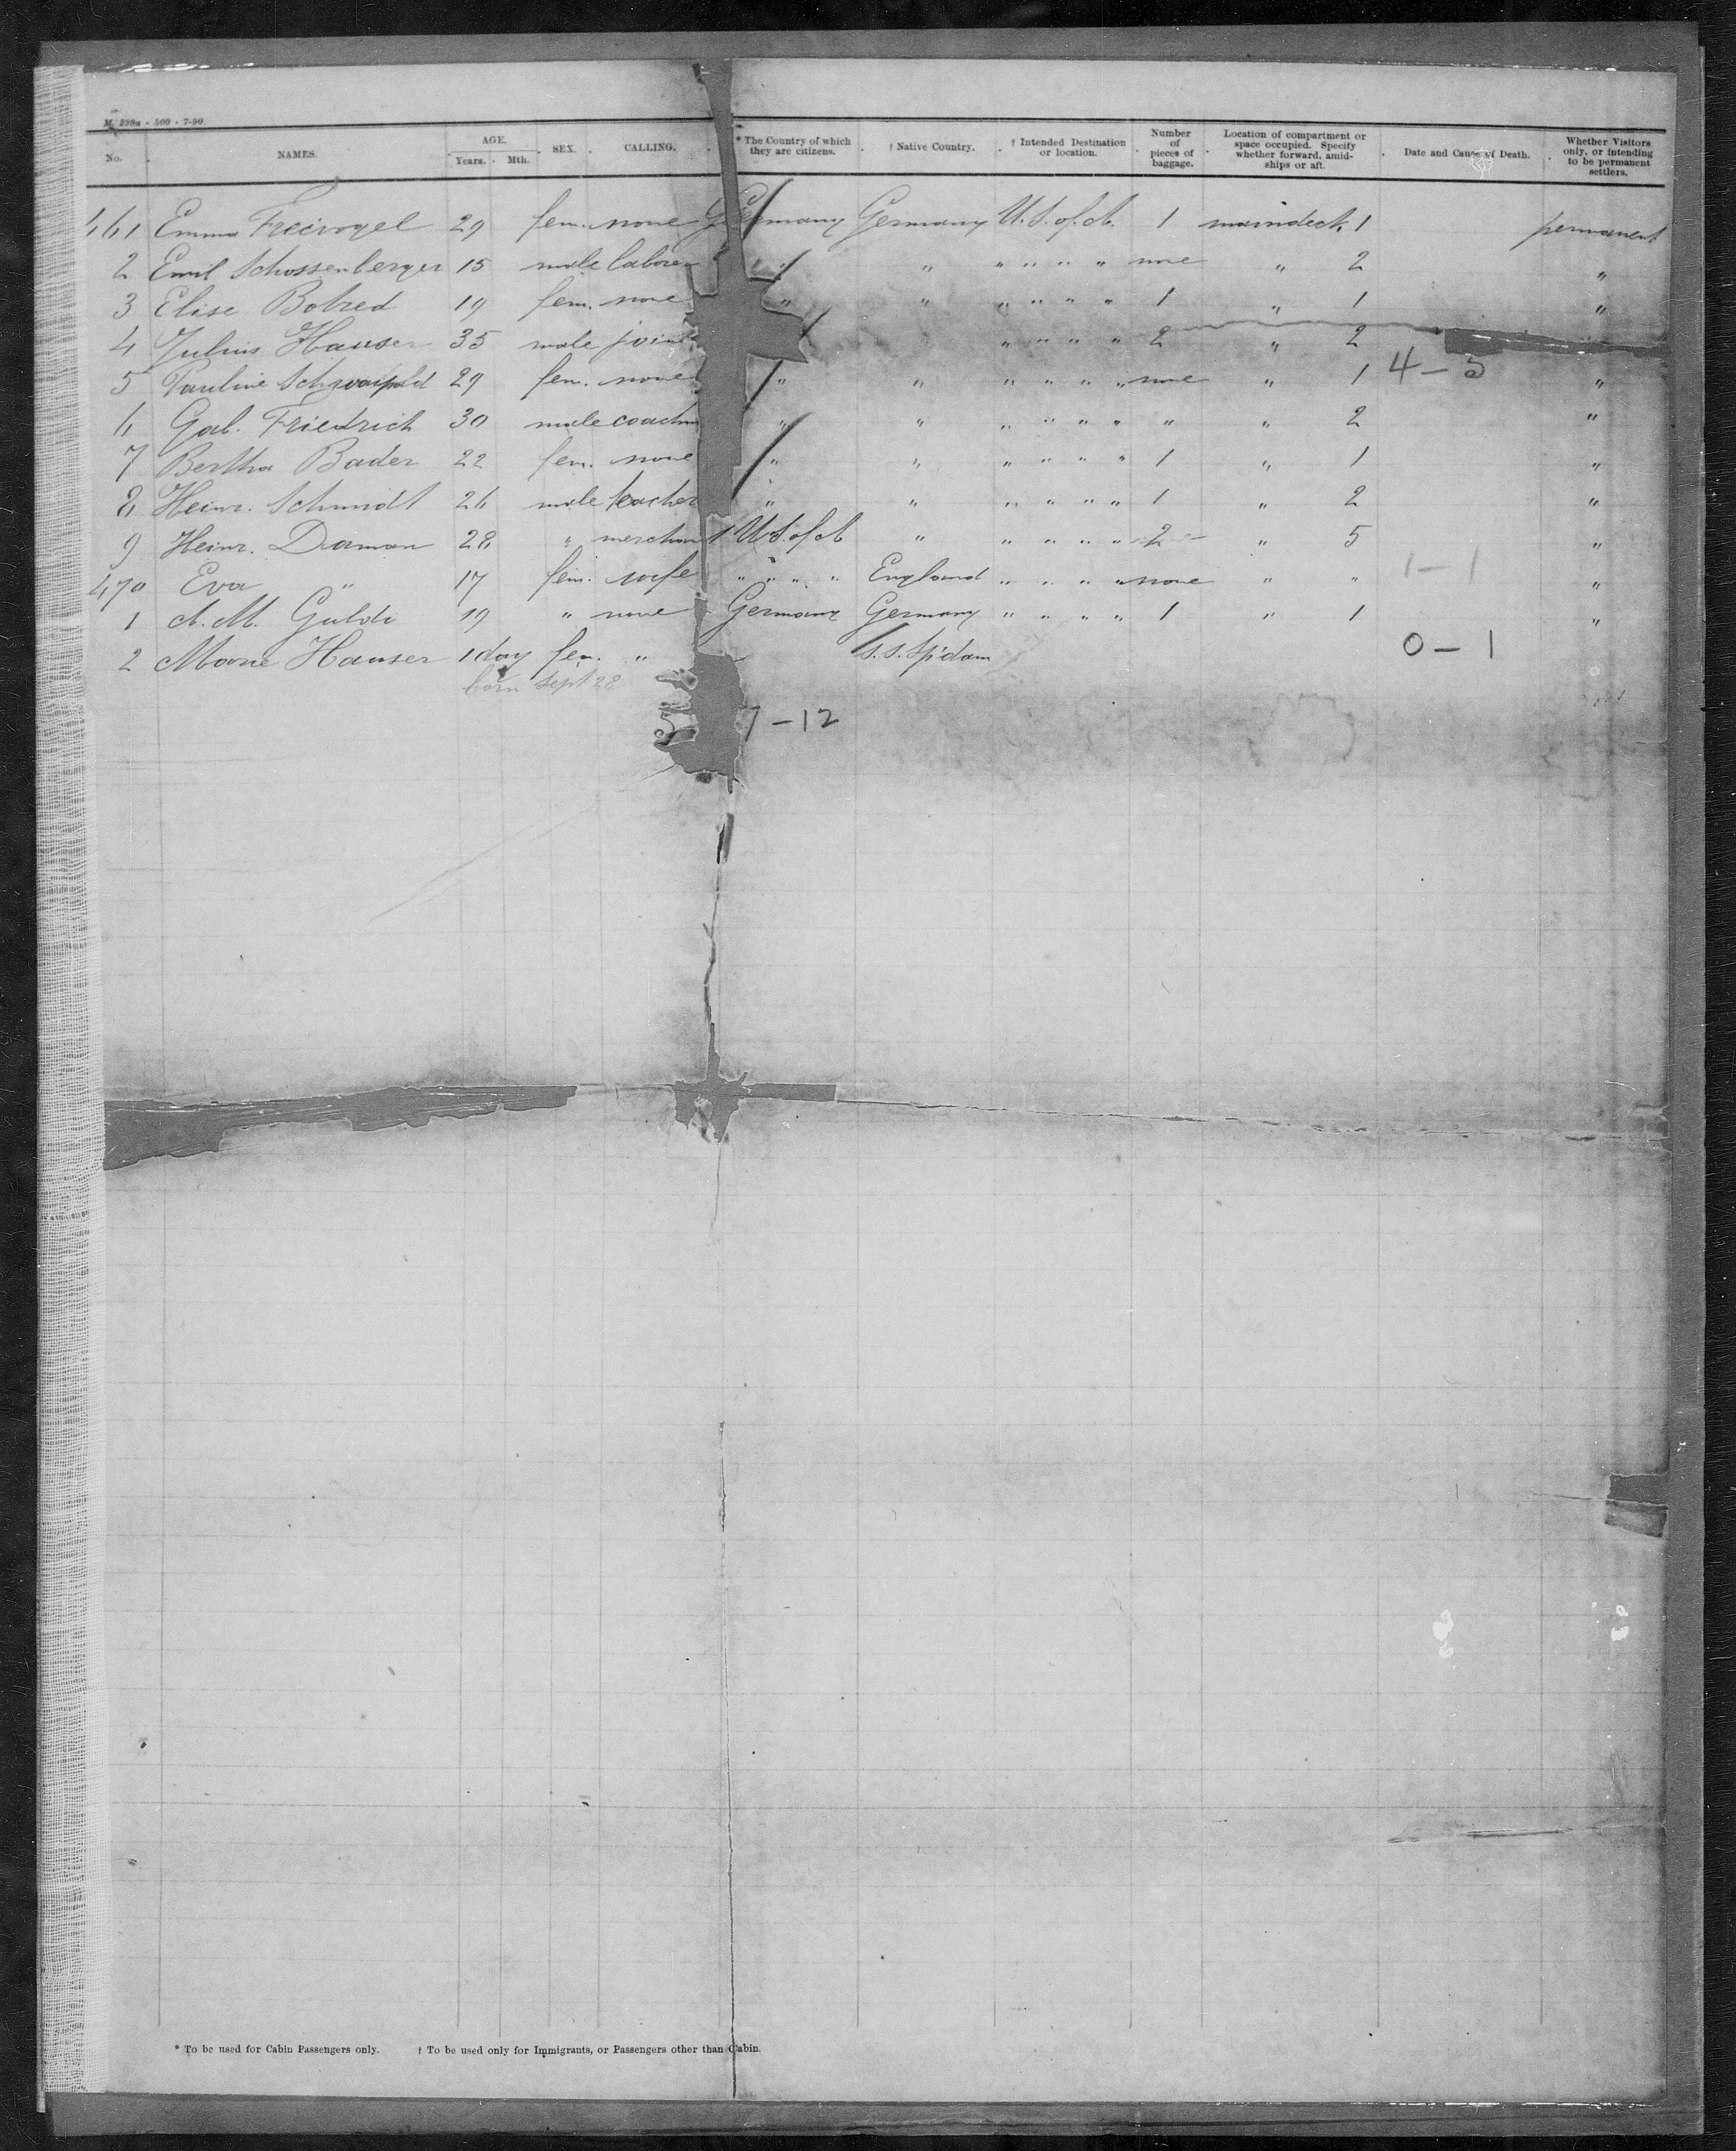 M. 299a - 500 - 7-90.
No. NAMES. AGE. Years. Mth. SEX. CALLING. * The Country of which they are citizens. † Native Country. † Intended Destination or location. Number of pieces of baggage. Location of compartment or space occupied. Specify whether forward, amidships or aft. Date and Cause of Death. Whether Visitors only, or intending to be permanent settlers.
461 Emma Freivogel 29 fem. none Germany Germany U.S. of A. 1 maindeck 1 permanent
2 Emil Schossenberger 15 male laborer " " " " " " none " 2 "
3 Elise 19 fem. none " " " " " " 1 " 1 "
4 Julius Hauser 35 male " " " " 2 " 2
5 Pauline 29 fem. none " " " " " " none " 1 4-5 "
6 Friedrich 30 male " " " " " " " " 2 "
7 Bertha Bader 22 fem. none " " " " " " 1 " 1 "
8 Heinr. Schmidt 26 male teacher " " " " " " 1 " 2 "
9 Heinr. Daman 28 " U.S. of A " " " " " 2 " 5 "
470 Eva " 17 fem. wife " " " " England " " " " none " " 1-1 "
1 A. M. Guldi 19 " none Germany Germany " " " " 1 " 1 "
2 Hauser 1 day fem. " S.S. Sp'dam 0-1
born Sept 28
7-12
* To be used for Cabin Passengers only. † To be used only for Immigrants, or Passengers other than Cabin.